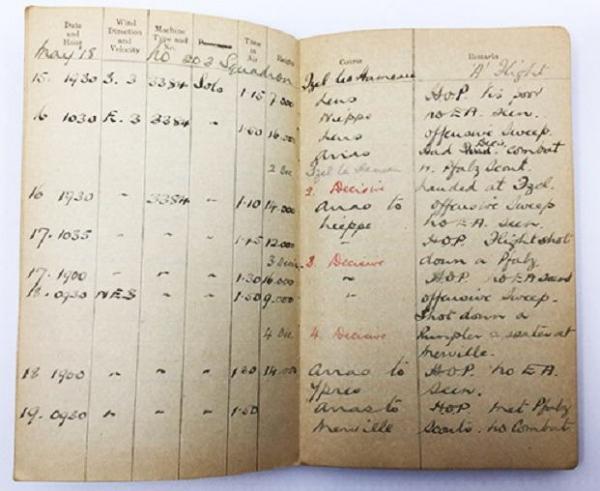 Date and Hour Wind Direction and Velocity Machine Type and No. Passenger Time in Air Height Course Remarks
May '18 No 203 Squadron Izel le Hameau "A" Flight
15. 1930 S. 3 3384 Solo 1.15 7,000 Lens H.O.P. Vis poor
Nieppe no E.A. seen.
16 1030 E. 3 3384 " 1.50 16,000 Lens offensive Sweep.
Arras Had Dec. combat
2 Dec Izel le Hameau w. Pfalz Scout.
2. Decisive Landed at Izel.
16 1930 " 3384 " 1.10 14,000 Arras to offensive Sweep
Nieppe no E.A. seen.
17. 1035 " " " 1.45 12,000 " H.O.P. Flight shot
3 Decisive 3. Decisive down a Pfalz.
17. 1900 " " " 1.30 16,000 " H.O.P. no EA seen
18. 0930 NE3 " " 1.50 9,000 " offensive Sweep.
Shot down a
4 Dec 4. Decisive Rumpler 2 seater at
Merville.
18 1900 " " " 1.20 14,000 Arras to H.O.P. no E.A.
Ypres seen.
19. 0930 " " " 1.50 Arras to H.O.P. met Pfalz
Merville Scouts. no Combat